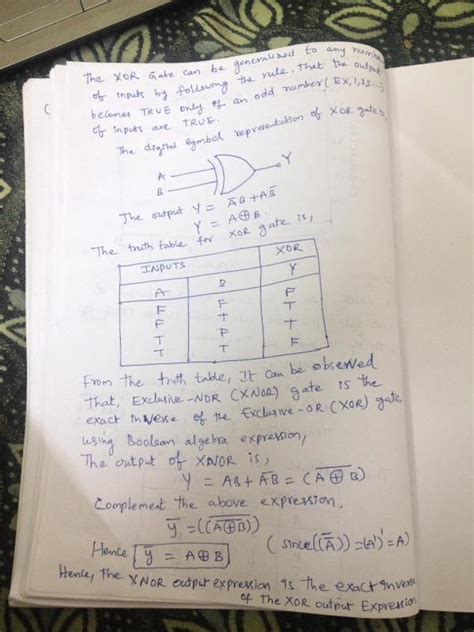 The XOR Gate can be generalized to any number
of inputs by following the rule, that the output
becomes TRUE only if an odd number (EX,1,3,5...)
of inputs are TRUE.
The digital symbol representation of XOR gate is,
A
B
Y
The output Y = A̅B + AB̅
Y = A⊕B.
The truth table for XOR gate is,
INPUTS XOR
A B Y
F F F
F T T
T F T
T T F
From the truth table, It can be observed
That, Exclusive-NOR (XNOR) gate is the
exact inverse of the Exclusive-OR (XOR) gate.
using Boolean algebra expression,
The output of XNOR is,
Y = AB + A̅B̅ = (A̅ ⊕ B̅)
Complement the above expression.
y̅ = ((A̅⊕B̅))
Hence y̅ = A⊕B (since((A̅)) = (A')' = A)
Hence, the XNOR output expression is the exact inverse
of the XOR output Expression